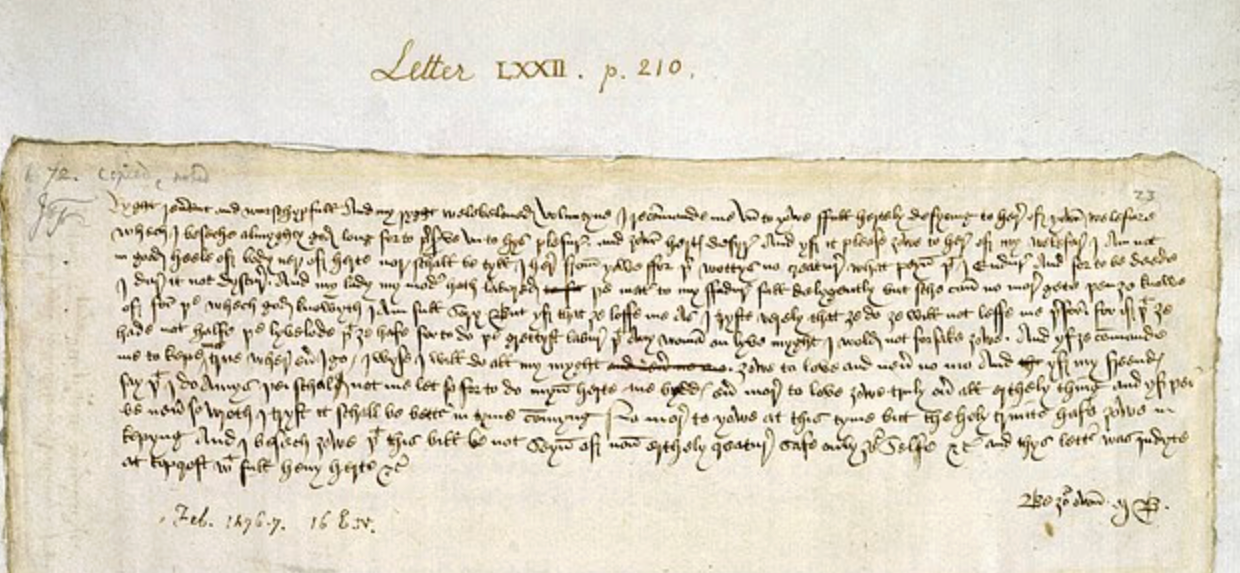 Letter LXXII. p. 210.
72. copied
23
Ryght reuerent and wurschypfull And my ryght welebeloued Voluntyne I recomande me vn to yowe ffull hertely desyring to here off yowr welefare
whech I beseche almyghty god long for to preserve vn to hys plesure and yowr hertys desyre And yff it please yowe to here off my welefar I Am not
in good heele off body ner off herte nor schall be tyll I here ffrom yowe ffor þer wottys no creature what peyn þat I Endure And for to be deede
I dure it not dyscure And my lady my moder hath labored þe mater to my ffadure full delygently but sche can no more gete þen ʒe knowe
off for þe whech god knowyth I Am full Sory But yff that ʒe loffe me As I tryste verely that ʒe do ʒe will not leffe me þerfor for iff þat ʒe
hade not halfe þe lyvelode þat ʒe hafe for to do þe grettyst labure þat Any woman on lyve myght I wold not forsake ʒowe. And yf ʒe comande
me to kepe me true wher euer I go I wyse I will do all my myght ʒowe to love and neuer no mo And yff my freendys
say þat I do Amys þei schal not me let so for to do myn herte me bydds euer more to love ʒowe truly ouer all erthely thing and yf þei
be neuer so wroth I tryst it schall be better in tyme comyng No more to yowe at this tyme but the holy trinite hafe ʒowe in
kepyng And I besech ʒowe þat this bill be not seyn off non erthely creatur safe only ʒour Selfe &c and thys letter was indyte
at topcroft wt full heuy herte &c
Be ʒour own MB.
Feb. 1476-7. 16 E. IV.